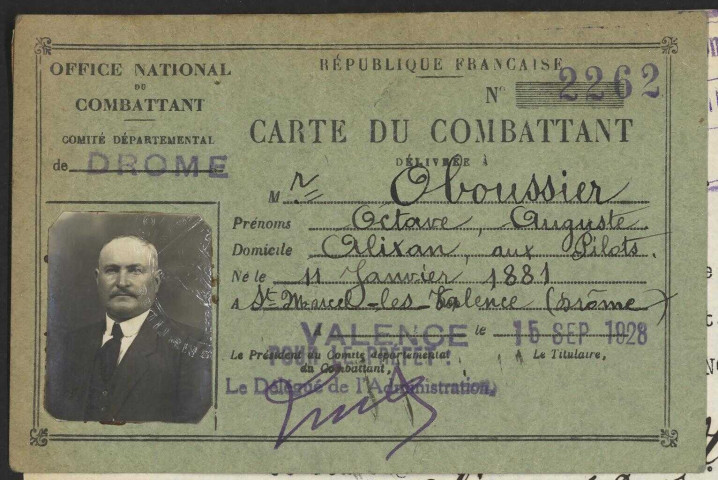 OFFICE NATIONAL
DU
COMBATTANT
COMITÉ DÉPARTEMENTAL
de DROME
RÉPUBLIQUE FRANÇAISE
N° 2262
CARTE DU COMBATTANT
DÉLIVRÉE À
M r Oboussier
Prénoms Octave, Auguste.
Domicile Alixan, aux Pilots.
Né le 11 Janvier 1881
A St Marcel-les-Valence (Drôme)
A VALENCE le 15 SEP 1928
Le Président du Comité départemental
du Combattant,
POUR LE PRÉFET:
Le Délégué de l'Administration,
Le Titulaire,